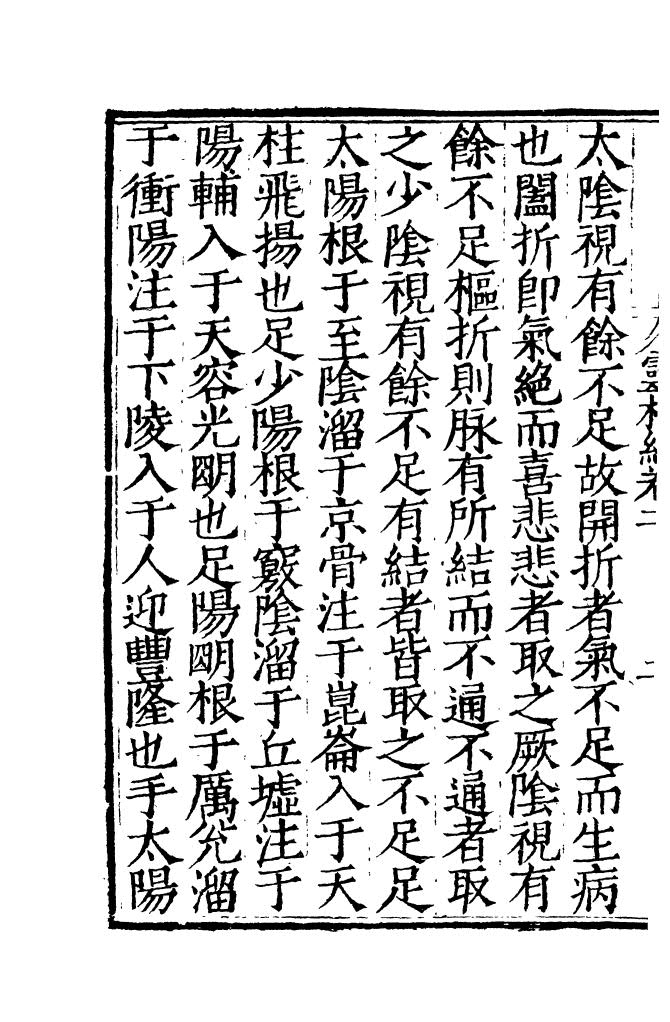 太陰視有餘不足故開折者氣不足而生病
也闔折卽氣絶而喜悲悲者取之厥陰視有
餘不足樞折則脉有所結而不通不通者取
之少陰視有餘不足有結者皆取之不足足
太陽根于至陰溜于京骨注于崑崙入于天
柱飛揚也足少陽根于竅陰溜于丘墟注于
陽輔入于天容光明也足陽明根于厲兊溜
于衝陽注于下陵入于人迎豐隆也手太陽